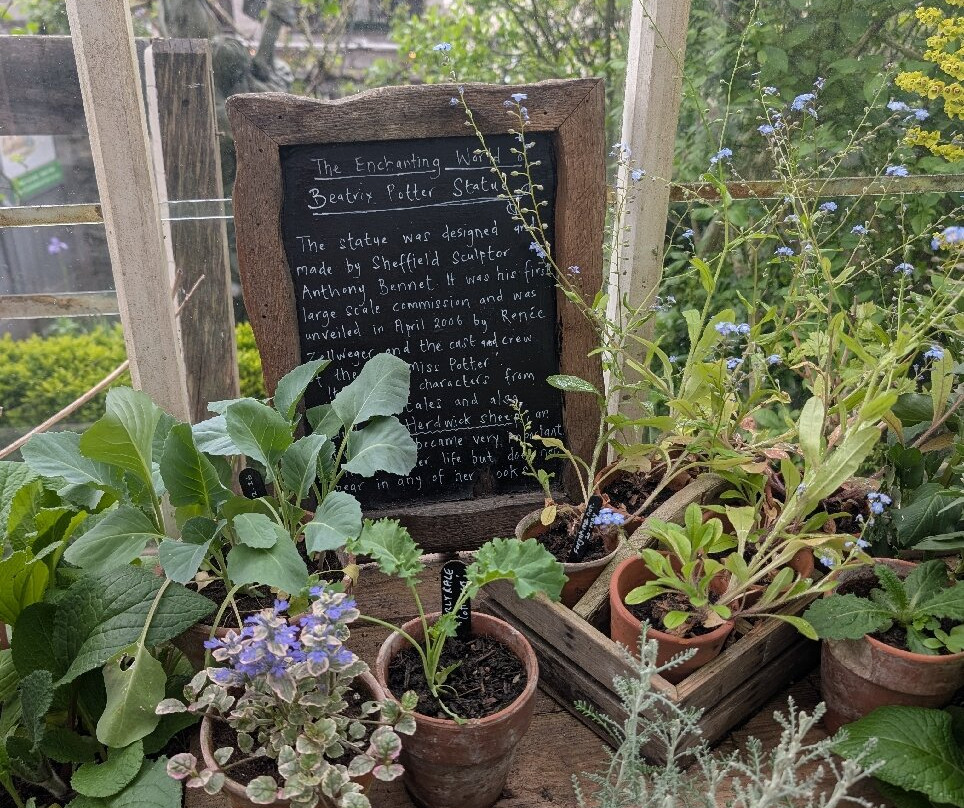 The Enchanting World
Beatrix Potter
The statue was designed
made by Sheffield Sculptor
Anthony Bennet. It was his first
large scale commission and was
unveiled in April 2006 by Renée
Zellweger and the cast and crew
the Miss Potter'
characters from
and also
Herdwick sheep, an
became very
her life but
in any of her